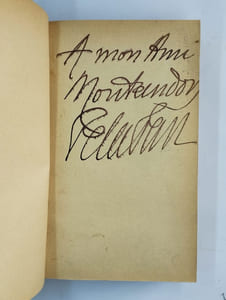 A mon Ami
Montandon
Péladan